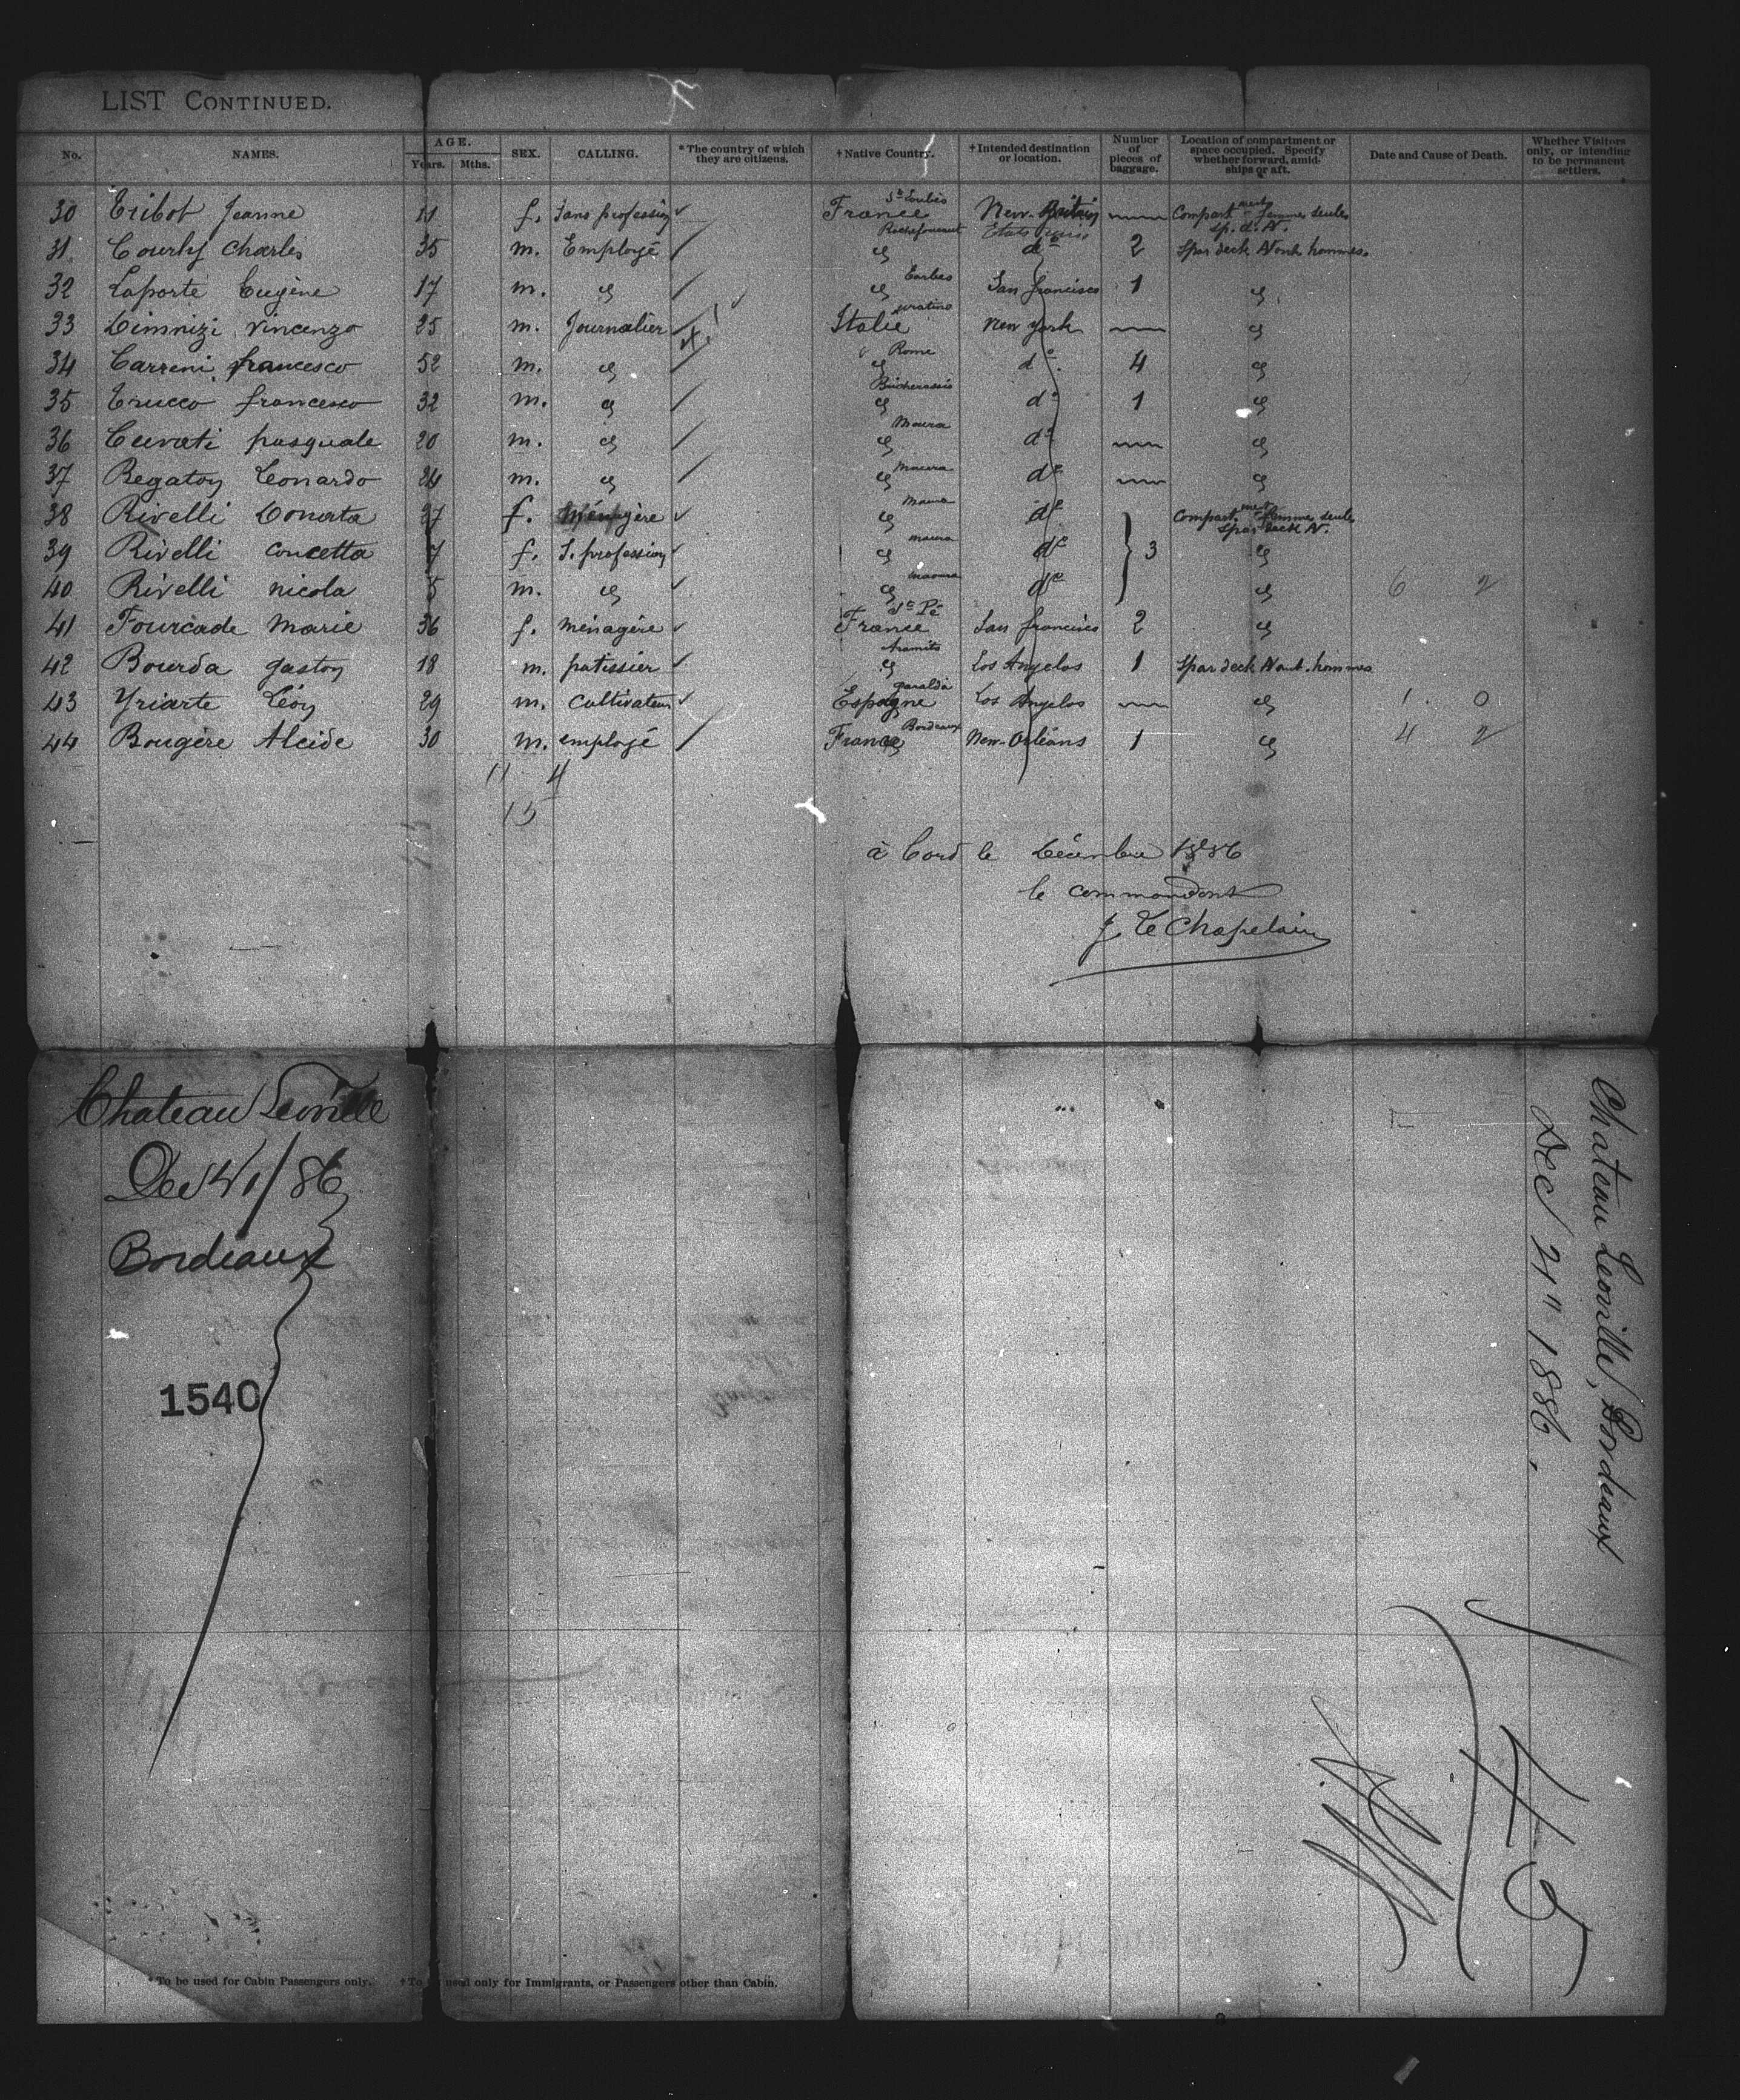 LIST CONTINUED.
No. NAMES. AGE. Years. Mths. SEX. CALLING. *The country of which they are citizens. †Native Country. †Intended destination or location. Number of pieces of baggage. Location of compartment or space occupied. Specify whether forward, amidships or aft. Date and Cause of Death. Whether Visitors only, or intending to be permanent settlers.
30 Tribot Jeanne 11 f. Sans profession France New-
Etats unis
31 Courty Charles 35 m. Employé do 2 Spar deck
32 Laporte Eugène 17 m. Tarbes San francisco 1
33 Dimnizi Vincenzo 25 m. Journalier Italie New york
34 Carreni francesco 52 m. Rome do 4
35 Trucco francesco 32 m. do 1
36 Curati pasquale 20 m. do
37 Regaton Leonardo 24 m. do
38 Rivelli Donata 27 f. Ménagère do
39 Rivelli Concetta 7 f. S. profession do 3
40 Rivelli nicola 5 m. do 6 2
41 Fourcade Marie 36 f. ménagère St Pé France San francisco 2
42 Bourda gaston 18 m. patissier Aramits Los Angelos 1 Spar deck
43 Yriarte Léon 29 m. Cultivateur Espagne Los Angelos 1 0
44 Bougère Alcide 30 m. employé Bordeaux France New-Orléans 1 4 2
11 4
15
à bord le Décembre 1886
le commandant
J. Le Chapelain
Chateau Leoville
Dec 21/86
Bordeaux
1540
Chateau Leoville, Bordeaux
Dec 21" 1886.
45
*To be used for Cabin Passengers only. †To be used only for Immigrants, or Passengers other than Cabin.